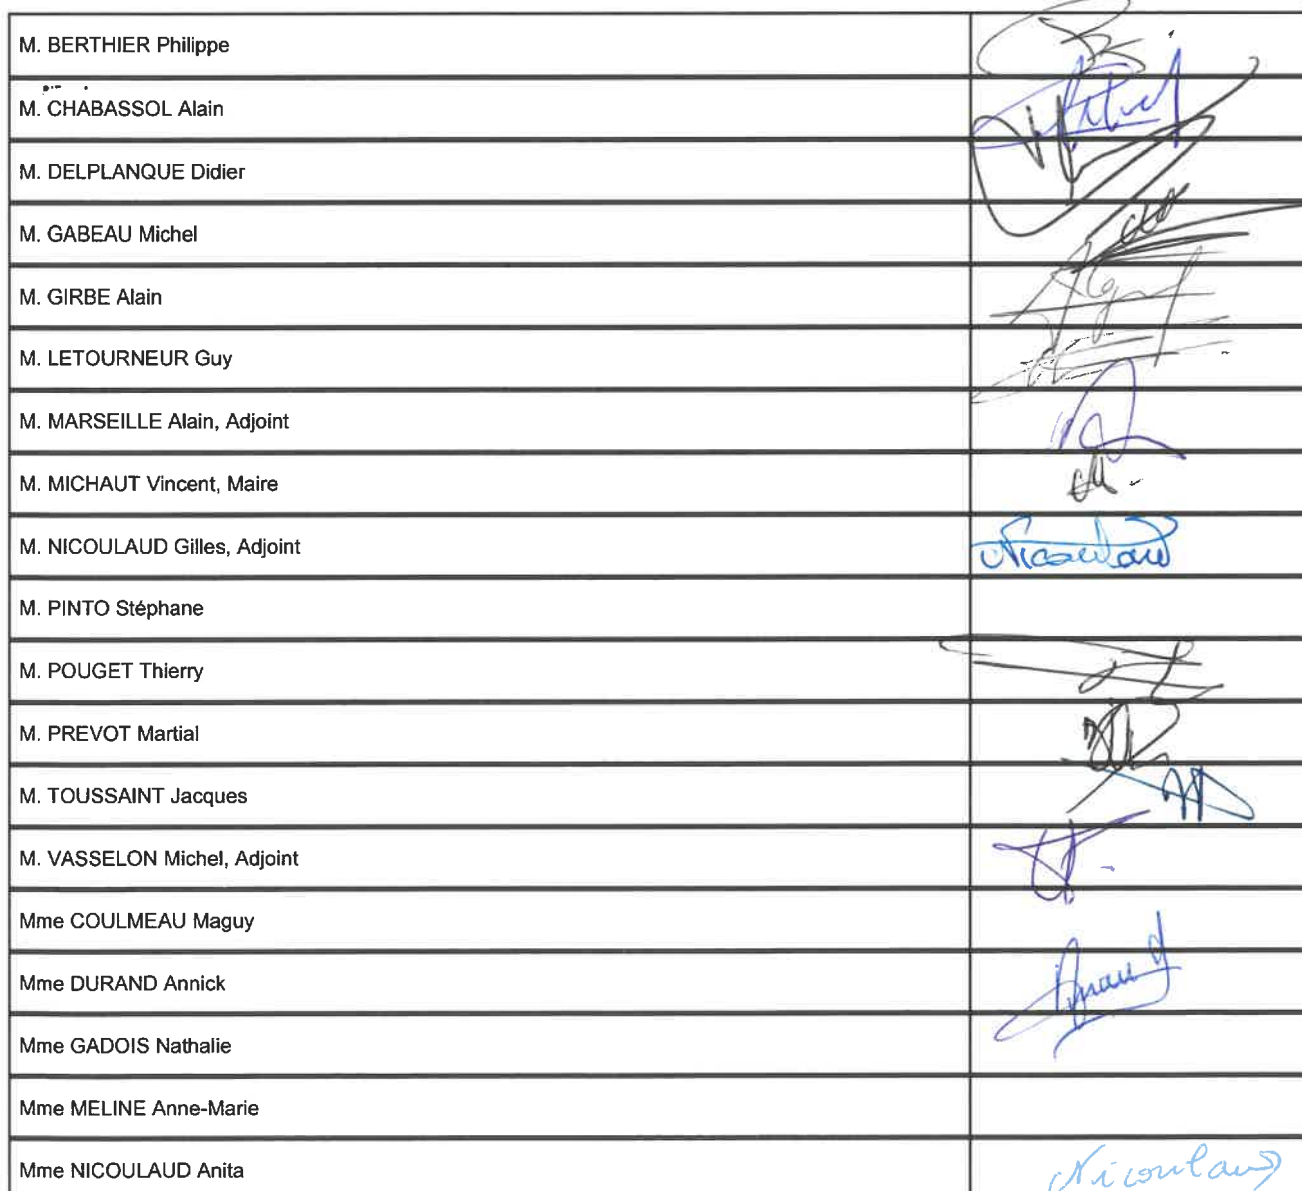 M. BERTHIER Philippe
M. CHABASSOL Alain
M. DELPLANQUE Didier
M. GABEAU Michel
M. GIRBE Alain
M. LETOURNEUR Guy
M. MARSEILLE Alain, Adjoint
M. MICHAUT Vincent, Maire
M. NICOULAUD Gilles, Adjoint
Nicoulaud
M. PINTO Stéphane
M. POUGET Thierry
M. PREVOT Martial
M. TOUSSAINT Jacques
M. VASSELON Michel, Adjoint
Mme COULMEAU Maguy
Mme DURAND Annick
Mme GADOIS Nathalie
Mme MELINE Anne-Marie
Mme NICOULAUD Anita
Nicoulaud